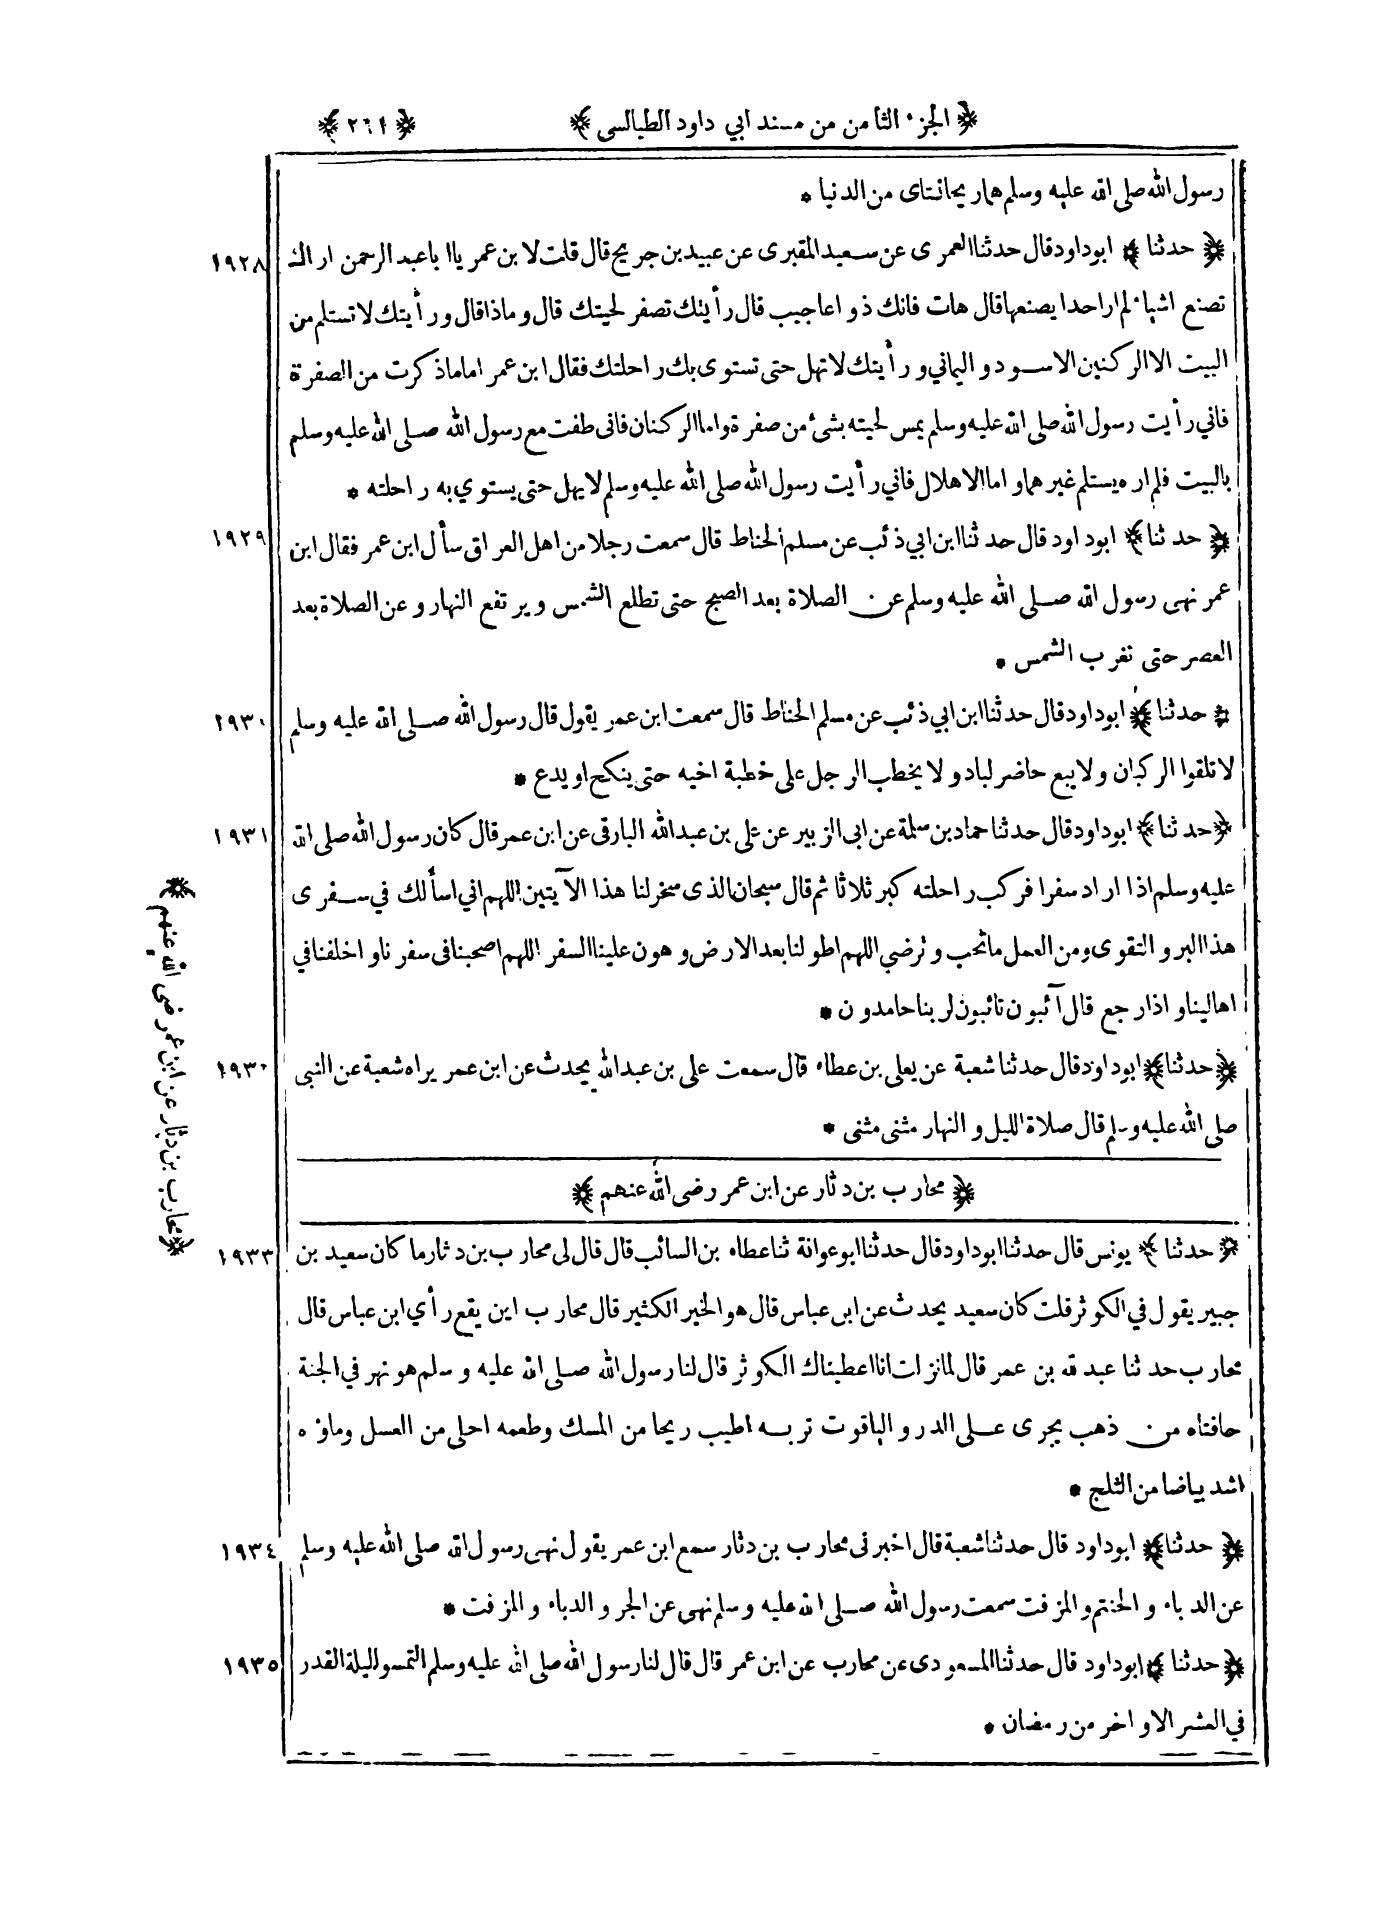 ﴿ الجزء الثامن من مسند ابي داود الطيالسي ﴾ ﴿ ٢٦١ ﴾
رسول الله صلى الله عليه وسلم هما ريحانتاى من الدنيا *
﴿ حدثنا ﴾ ابوداود قال حدثنا العمرى عن سعيد المقبرى عن عبيد بن جريج قال قلت لابن عمر يا ابا عبد الرحمن اراك ١٩٢٨
تصنع اشياء لم ار احدا يصنعها قال هات فانك ذو اعاجيب قال رأيتك تصفر لحيتك قال وماذا قال ورأيتك لا تستلم من
البيت الا الركنين الاسود و اليماني و رأيتك لا تهل حتى تستوى بك راحلتك فقال ابن عمر اما ما ذكرت من الصفرة
فاني رأيت رسول الله صلى الله عليه وسلم يمس لحيته بشئ من صفرة واما الركنان فانى طفت مع رسول الله صلى الله عليه وسلم
بالبيت فلم اره يستلم غيرهما و اما الاهلال فاني رأيت رسول الله صلى الله عليه وسلم لا يهل حتى يستوي به راحلته *
﴿ حدثنا ﴾ ابوداود قال حدثنا ابن ابي ذئب عن مسلم الحناط قال سمعت رجلا من اهل العراق سأل ابن عمر فقال ابن ١٩٢٩
عمر نهى رسول الله صلى الله عليه وسلم عن الصلاة بعد الصبح حتى تطلع الشمس و يرتفع النهار و عن الصلاة بعد
العصر حتى تغرب الشمس *
﴿ حدثنا ﴾ ابوداود قال حدثنا ابن ابي ذئب عن مسلم الحناط قال سمعت ابن عمر يقول قال رسول الله صلى الله عليه وسلم ١٩٣٠
لا تلقوا الركبان ولا يبع حاضر لباد و لا يخطب الرجل على خطبة اخيه حتى ينكح او يدع *
﴿ حدثنا ﴾ ابوداود قال حدثنا حماد بن سلمة عن ابى الزبير عن على بن عبدالله البارقى عن ابن عمر قال كان رسول الله صلى الله ١٩٣١
عليه وسلم اذا اراد سفرا فركب راحلته كبر ثلاثا ثم قال سبحان الذى سخر لنا هذا الآيتين اللهم اني اسألك في سفرى
هذا البر و التقوى ومن العمل ما تحب و ترضي اللهم اطو لنا بعد الارض و هون علينا السفر اللهم اصحبنا فى سفرنا و اخلفنا في
اهالينا و اذا رجع قال آئبون تائبون لربنا حامدون *
﴿ حدثنا ﴾ ابوداود قال حدثنا شعبة عن يعلى بن عطاء قال سمعت على بن عبدالله يحدث عن ابن عمر يراه شعبة عن النبى ١٩٣٢
صلى الله عليه وسلم قال صلاة الليل و النهار مثنى مثنى *
﴿ محارب بن دثار عن ابن عمر رضى الله عنهم ﴾
﴿ محارب بن دثار عن ابن عمر رضى الله عنهم ﴾
﴿ حدثنا ﴾ يونس قال حدثنا ابوداود قال حدثنا ابو عوانة ثنا عطاء بن السائب قال قال لى محارب بن دثار ما كان سعيد بن ١٩٣٣
جبير يقول في الكوثر قلت كان سعيد يحدث عن ابن عباس قال هو الخير الكثير قال محارب اين يقع رأي ابن عباس قال
محارب حدثنا عبد الله بن عمر قال لما نزلت انا اعطيناك الكوثر قال لنا رسول الله صلى الله عليه وسلم هو نهر في الجنة
حافتاه من ذهب يجرى على الدر و الياقوت تربه اطيب ريحا من المسك وطعمه احلى من العسل وماؤه
اشد بياضا من الثلج *
﴿ حدثنا ﴾ ابوداود قال حدثنا شعبة قال اخبرنى محارب بن دثار سمع ابن عمر يقول نهى رسول الله صلى الله عليه وسلم ١٩٣٤
عن الدباء و الحنتم و المزفت سمعت رسول الله صلى الله عليه وسلم نهى عن الجر و الدباء و المزفت *
﴿ حدثنا ﴾ ابوداود قال حدثنا المسعودى عن محارب عن ابن عمر قال قال لنا رسول الله صلى الله عليه وسلم التمسوا ليلة القدر ١٩٣٥
في العشر الاواخر من رمضان *